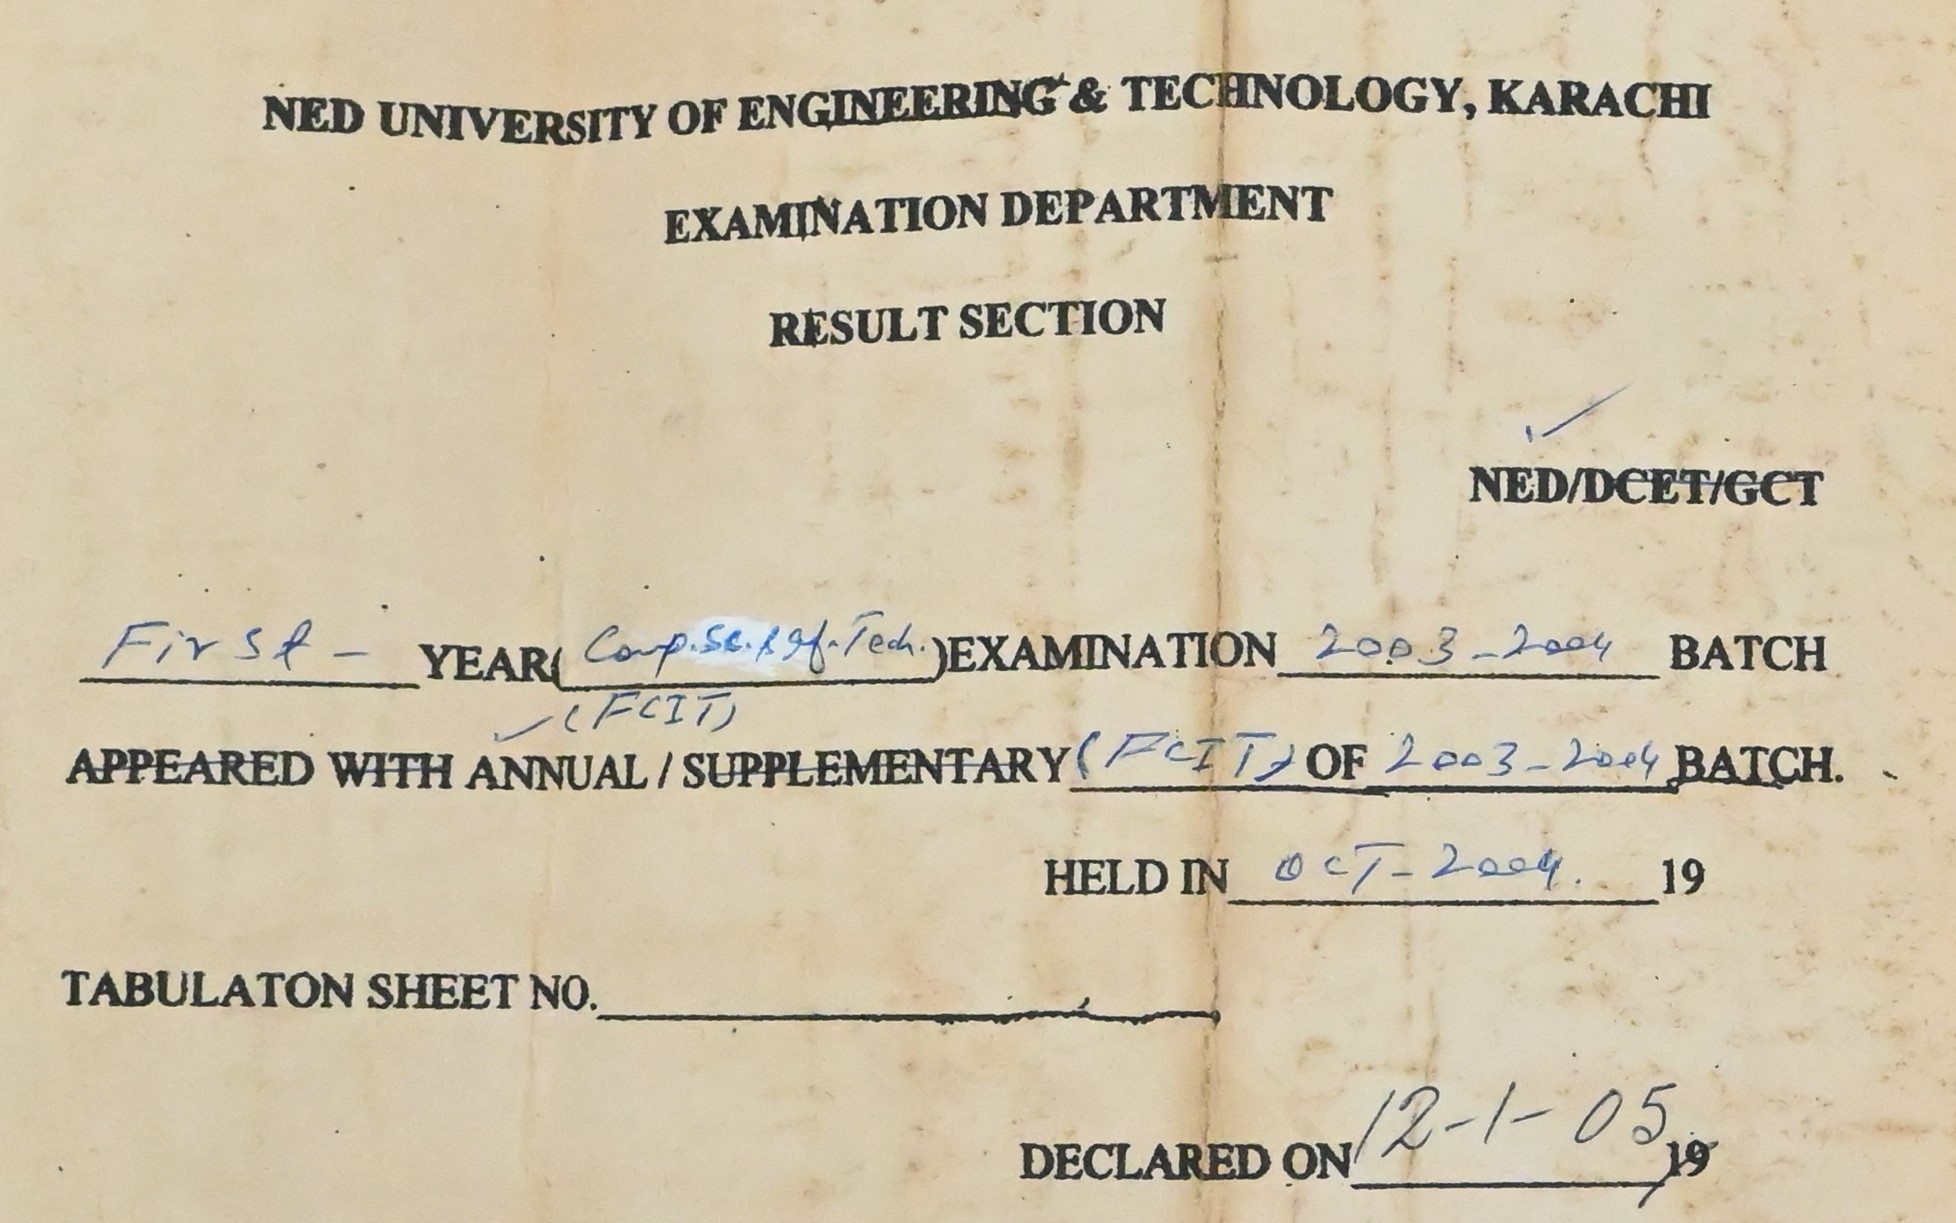 NED UNIVERSITY OF ENGINEERING & TECHNOLOGY, KARACHI
EXAMINATION DEPARTMENT
RESULT SECTION
NED/DCET/GCT
First - YEAR( Comp.Sc. & If. Tech. )EXAMINATION 2003-2004 BATCH
(FCIT)
APPEARED WITH ANNUAL / SUPPLEMENTARY (FCIT) OF 2003-2004 BATCH.
HELD IN OCT-2004. 19
TABULATON SHEET NO.
DECLARED ON 12-1-05 19